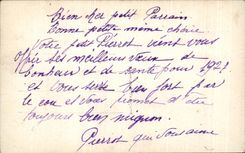 Bien cher petit Parrain
bonne petite mémé chérie
Votre petit Pierrot vient vous
offrir ses meilleurs vœux de
bonheur et de santé pour 1921
et vous serre bien fort par
le cou et vous promet d'être
toujours bien mignon.
Pierrot qui vous aime